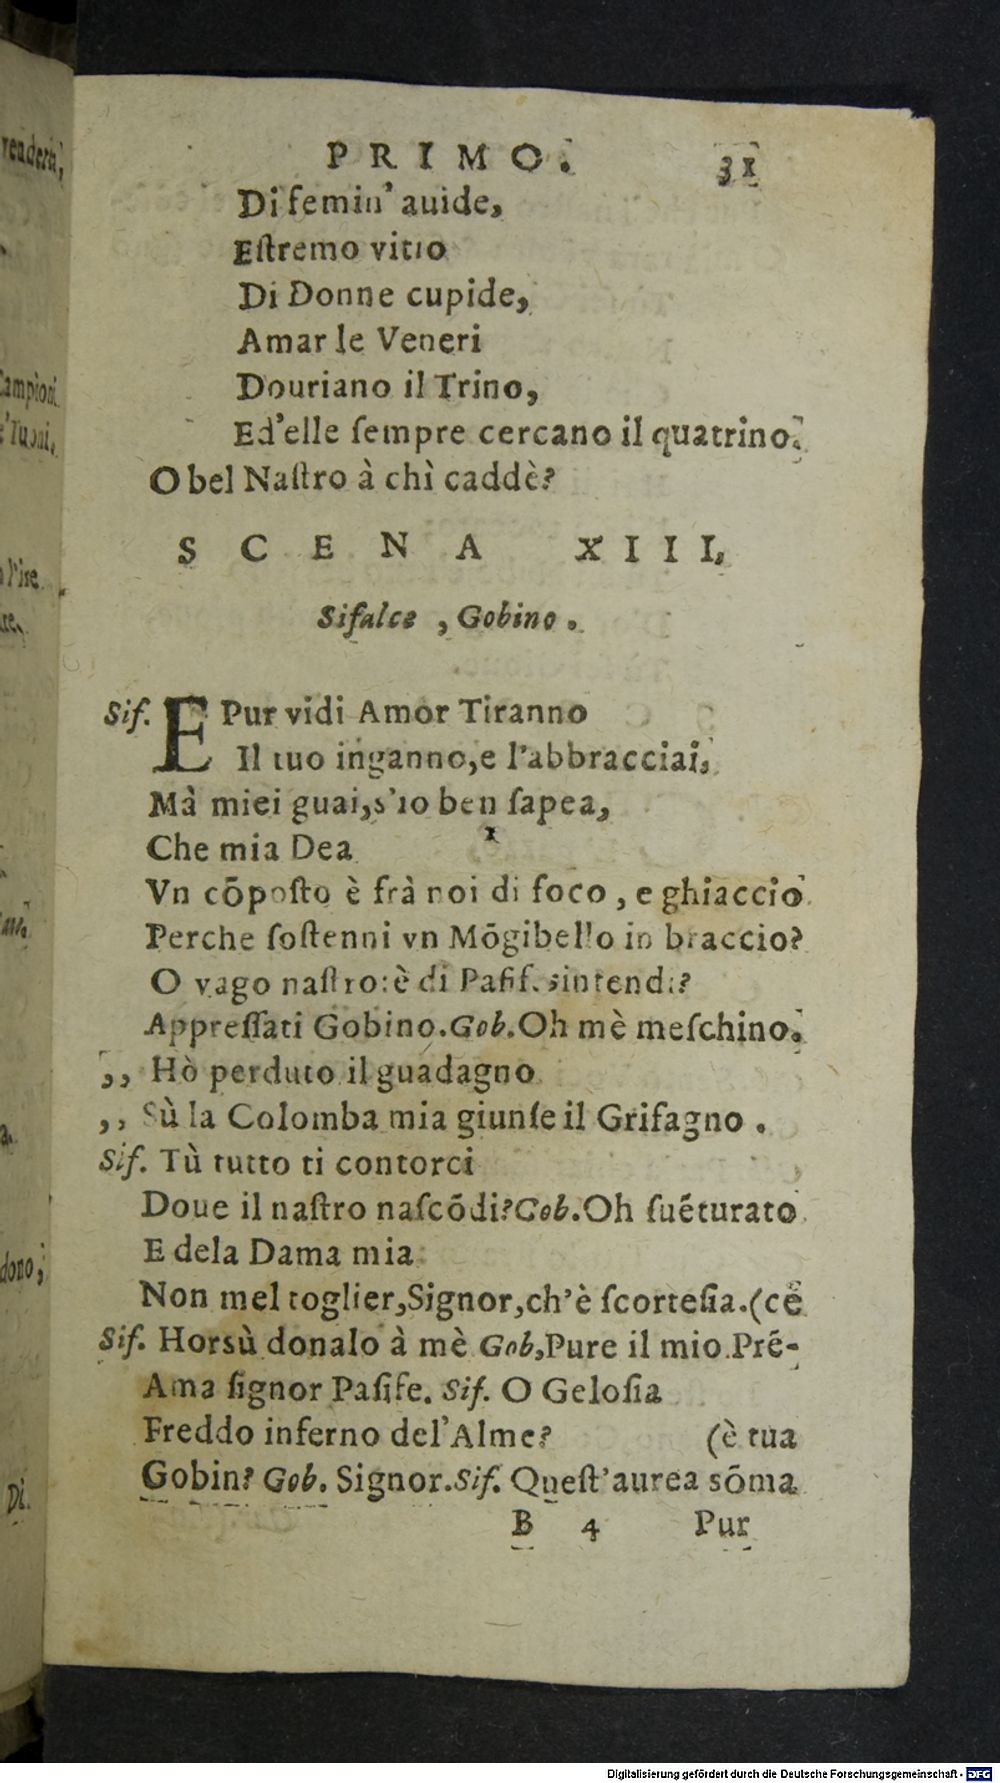 PRIMO. 31
Di femin' auide,
Eſtremo vitio
Di Donne cupide,
Amar le Veneri
Douriano il Trino,
Ed'elle ſempre cercano il quatrino.
O bel Naſtro à chì caddè?
SCENA XIII.
Sifalce, Gobino.
Sif. E Pur vidi Amor Tiranno
Il tuo inganno,e l'abbracciai,
Mà miei guai,s'io ben ſapea,
Che mia Dea
Vn cōpoſto è frà noi di foco, e ghiaccio
Perche ſoſtenni vn Mōgibello in braccio?
O vago naſtro:è di Paſif. s'intend:?
Appreſſati Gobino.Gob.Oh mè meſchino.
,, Hò perduto il guadagno
,, Sù la Colomba mia giunſe il Grifagno.
Sif. Tù tutto ti contorci
Doue il naſtro naſcōdi?Gob.Oh ſuēturato
E dela Dama mia
Non mel toglier,Signor,ch'è ſcorteſia.(ce
Sif. Horsù donalo à mè Gob,Pure il mio Prē-
Ama ſignor Paſife. Sif. O Geloſia
Freddo inferno del'Alme? (è tua
Gobin? Gob. Signor.Sif. Queſt'aurea sōma
B 4 Pur
renderia,
Campioni
dono,
Di.
Digitalisierung gefördert durch die Deutsche Forschungsgemeinschaft - DFG